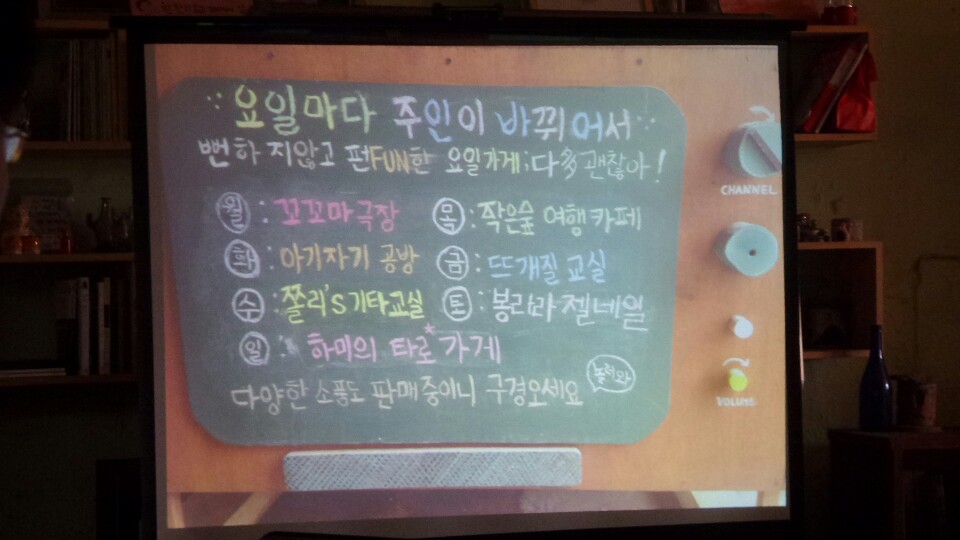 요일마다 주인이 바뀌어서
뻔하지않고 펀FUN한 요일가게;다多괜찮아!
월 : 꼬꼬마극장
목 : 작은숲 여행카페
화 : 아기자기 공방
금 : 뜨개질 교실
수 : 쫄리's 기타교실
토 : 봉라라 젤네일
일 : 하미의 타로가게
다양한 소품도 판매중이니 구경오세요
놀러와
CHANNEL
VOLUME